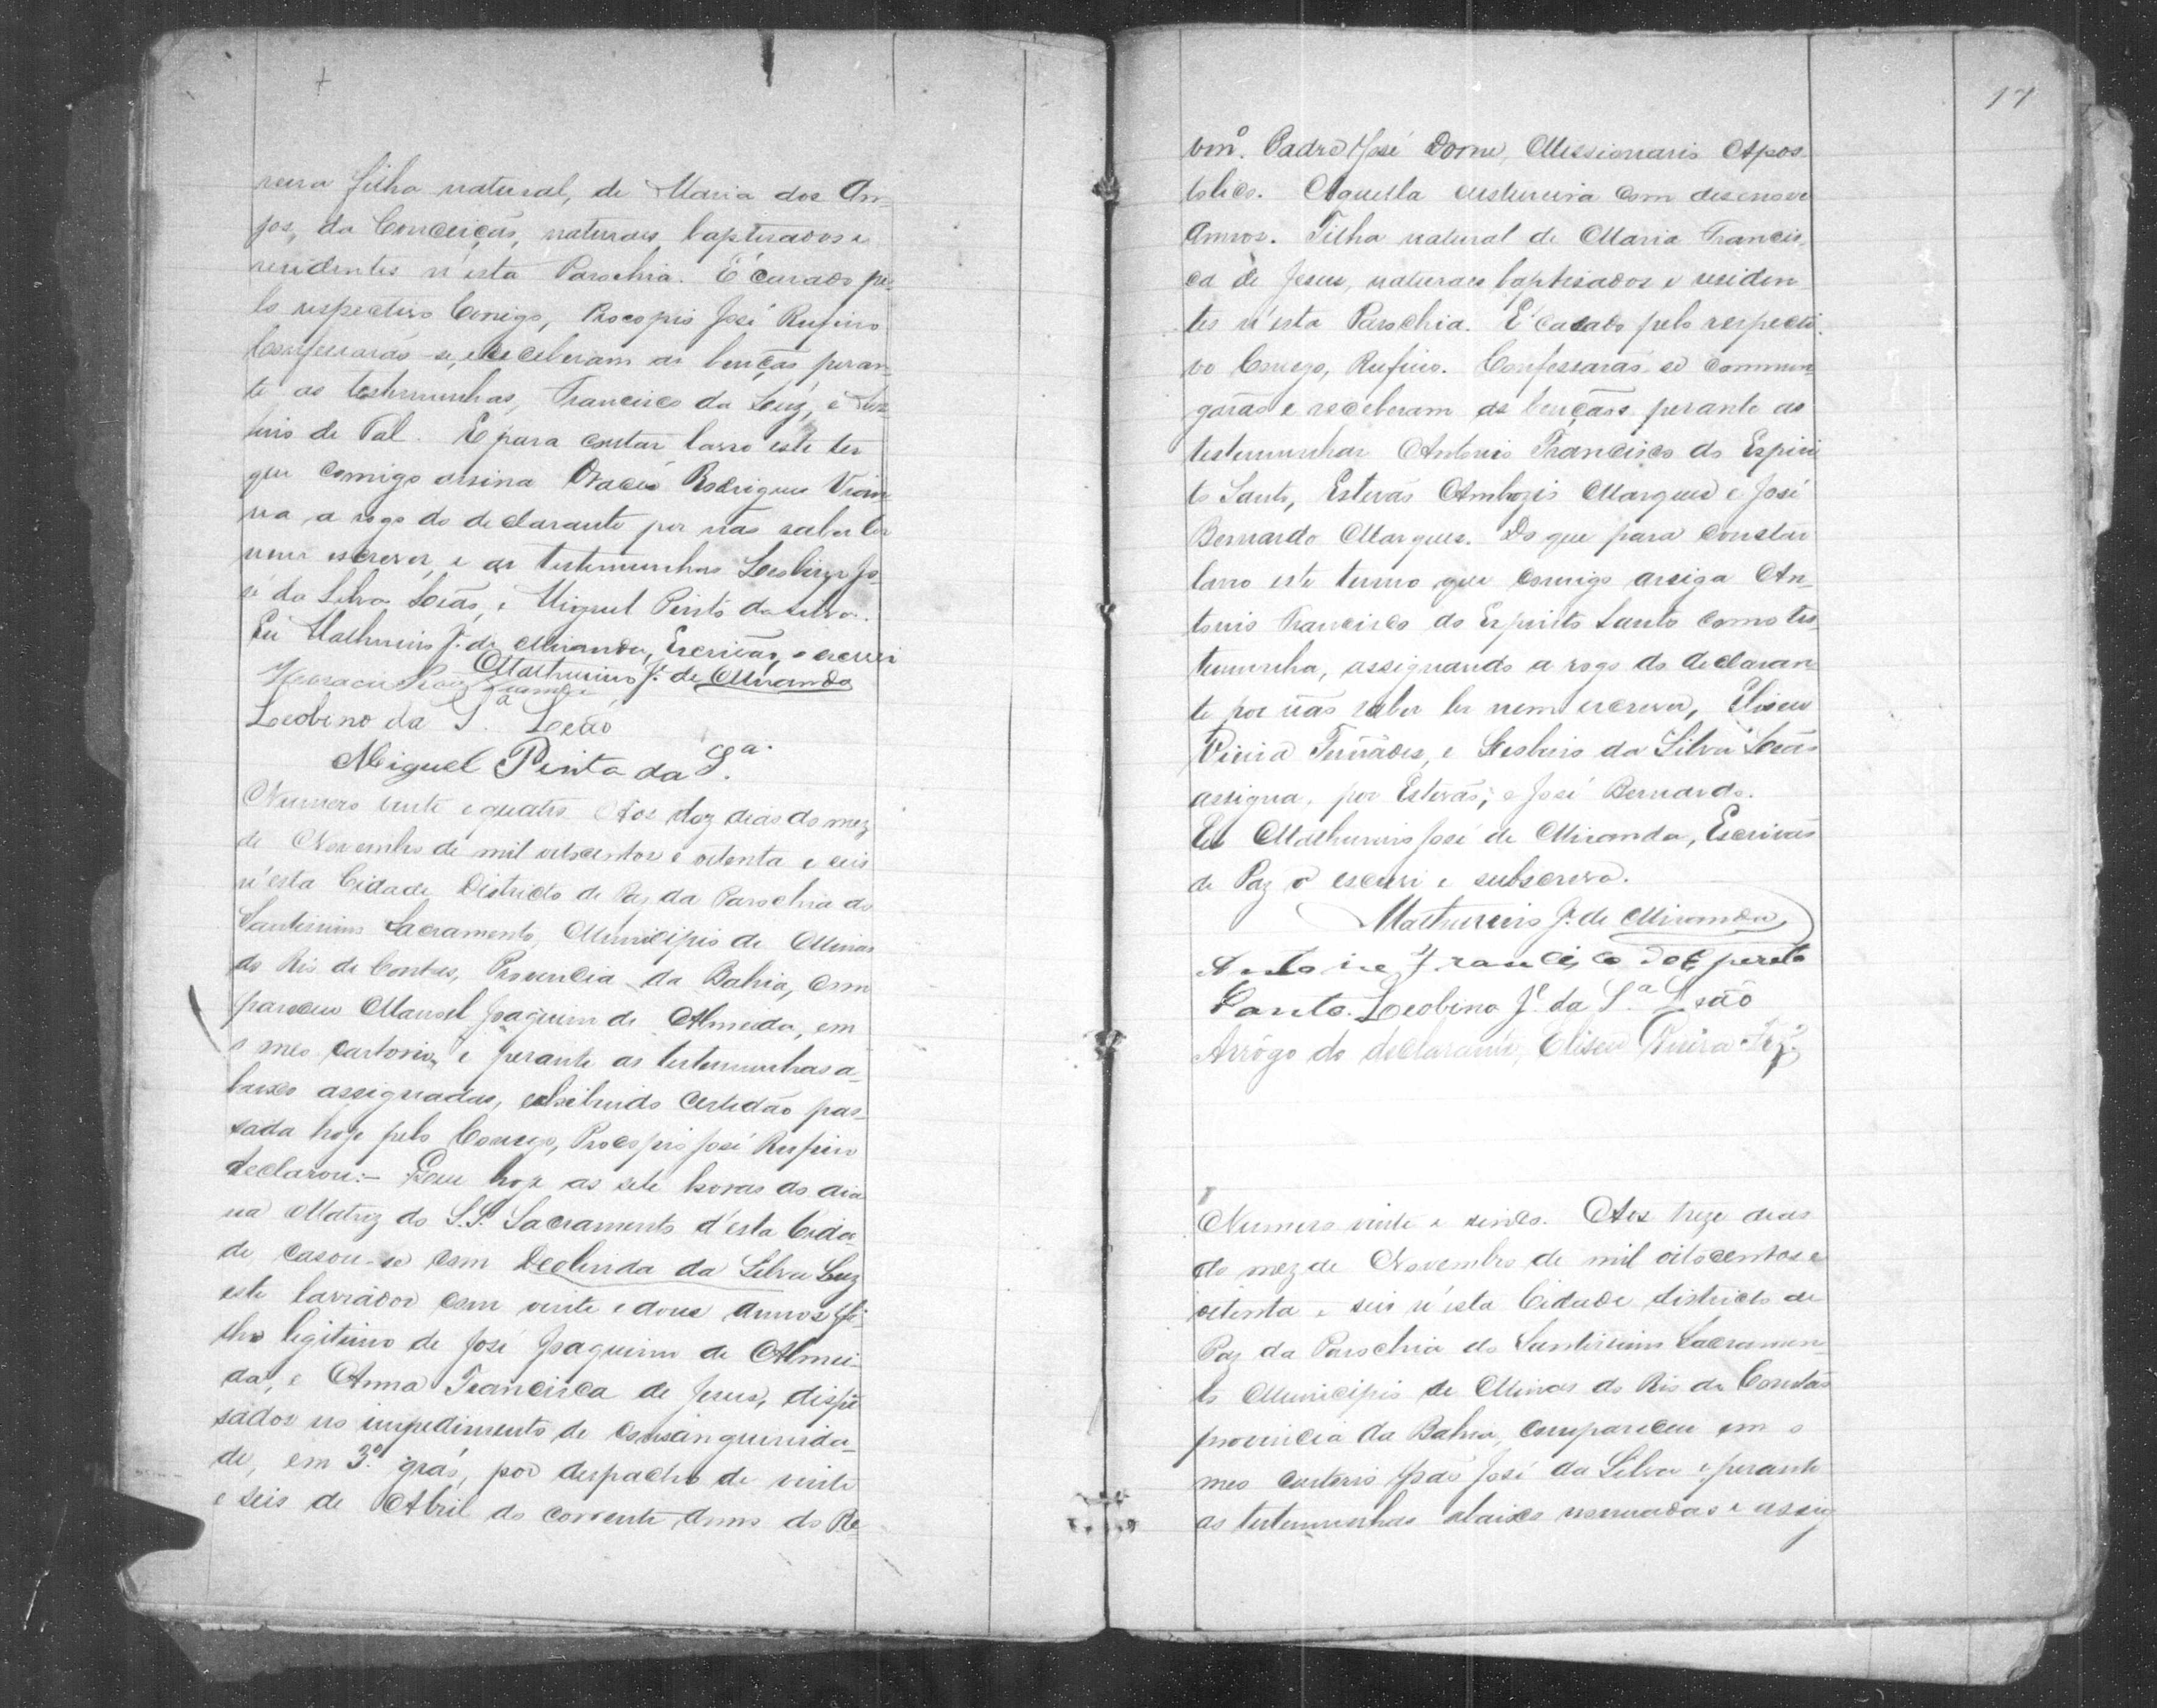 reira filha natural, de Maria dos An-
jos, da Conceição, naturaes, baptisados e
residentes n'esta Parochia. É curado pe-
lo respectivo Conego, Procopio José Rufino
Confessarão-se, e receberam as bençãs peran-
te as testemunhas, Francisco da Luz, e
de Tal. E para constar lavro este ter
que comigo assina Oracio Rodrigues Vian
na, a rogo do declarante por não saber ler
nem escrever, e as testemunhas Leobino Jo-
sé da Silva Leão, e Miguel Pinto da Silva.
Eu Mathurino J.e de Miranda, Escrivão, o escrevi
Mathurino J.e de Miranda
Leobino da S.a Leão
Miguel Pinto da S.a
Numero vinte e quatro. Aos doz dias do mez
de Novembro de mil oitocentos e oitenta e seis
n'esta Cidade, Districto de Paz da Parochia do
Santissimo Sacramento, Municipio de Minas
do Rio de Contas, Provincia da Bahia, com
pareceu Manoel Joaquim de Almeida, em
o meo cartorio, e perante as testemunhas a-
baixo assignadas, exhibindo certidão pas-
sada hoje pelo Conego, Procopio José Rufino
declarou:- Que hoje as sete horas do dia
na Matriz do S.S. Sacramento d'esta Cida-
de, casou-se com Deolinda da Silva Luz
este lavrador com vinte e dous annos, fi-
lho legitimo de José Joaquim de Almei-
da, e Anna Francisca de Jesus, dispē
sados no impedimento de consanguinida-
de, em 3.º gráo, por despacho de vinte
e seis de Abril do corrente anno do Re
17
vm.º Padre José Dorme, Missionario Apos
tolico. Aquella custureira com desenove
annos. Filha natural de Maria Francis
ca de Jesus, naturaes baptisados e residen
tes n'esta Parochia. É casado pelo respecti
vo Conego, Rufino. Confessarão se commun
garão e receberam as bençãos perante as
testemunhas Antonio Francisco do Espiri
to Santo, Estevão Ambrozio Marques e José
Bernardo Marques. Do que para constar
lavro este termo que comigo assiga An-
tonio Francisco do Espirito Santo como tes
temunha, assignando a rogo do declaran
te por não saber ler nem escrever, Eliseu
Vieira Fernãdes, e Leobino da Silva Leão
assigna, por Estevão, e José Bernardo.
Eu Mathurino José de Miranda, Escrivão
de Paz o escrevi e subscrevo.
Mathurino J.e de Miranda
Antoine Francisco do Espereto
Santo. Leobino J.e da S.a Leão
Arrôgo do declarante, Eliseu Vieira Fez.
Numero vinte e sinco. Aos treze dias
do mez de Novembro de mil oitocentos e
oitenta e seis n'esta Cidade districto de
Paz da Parochia do Santissimo Sacramen
to Municipio de Minas do Rio de Contas
provincia da Bahia, compareceu em o
meo cartorio João José da Silva e perante
as testemunhas abaixo nomeadas e assig